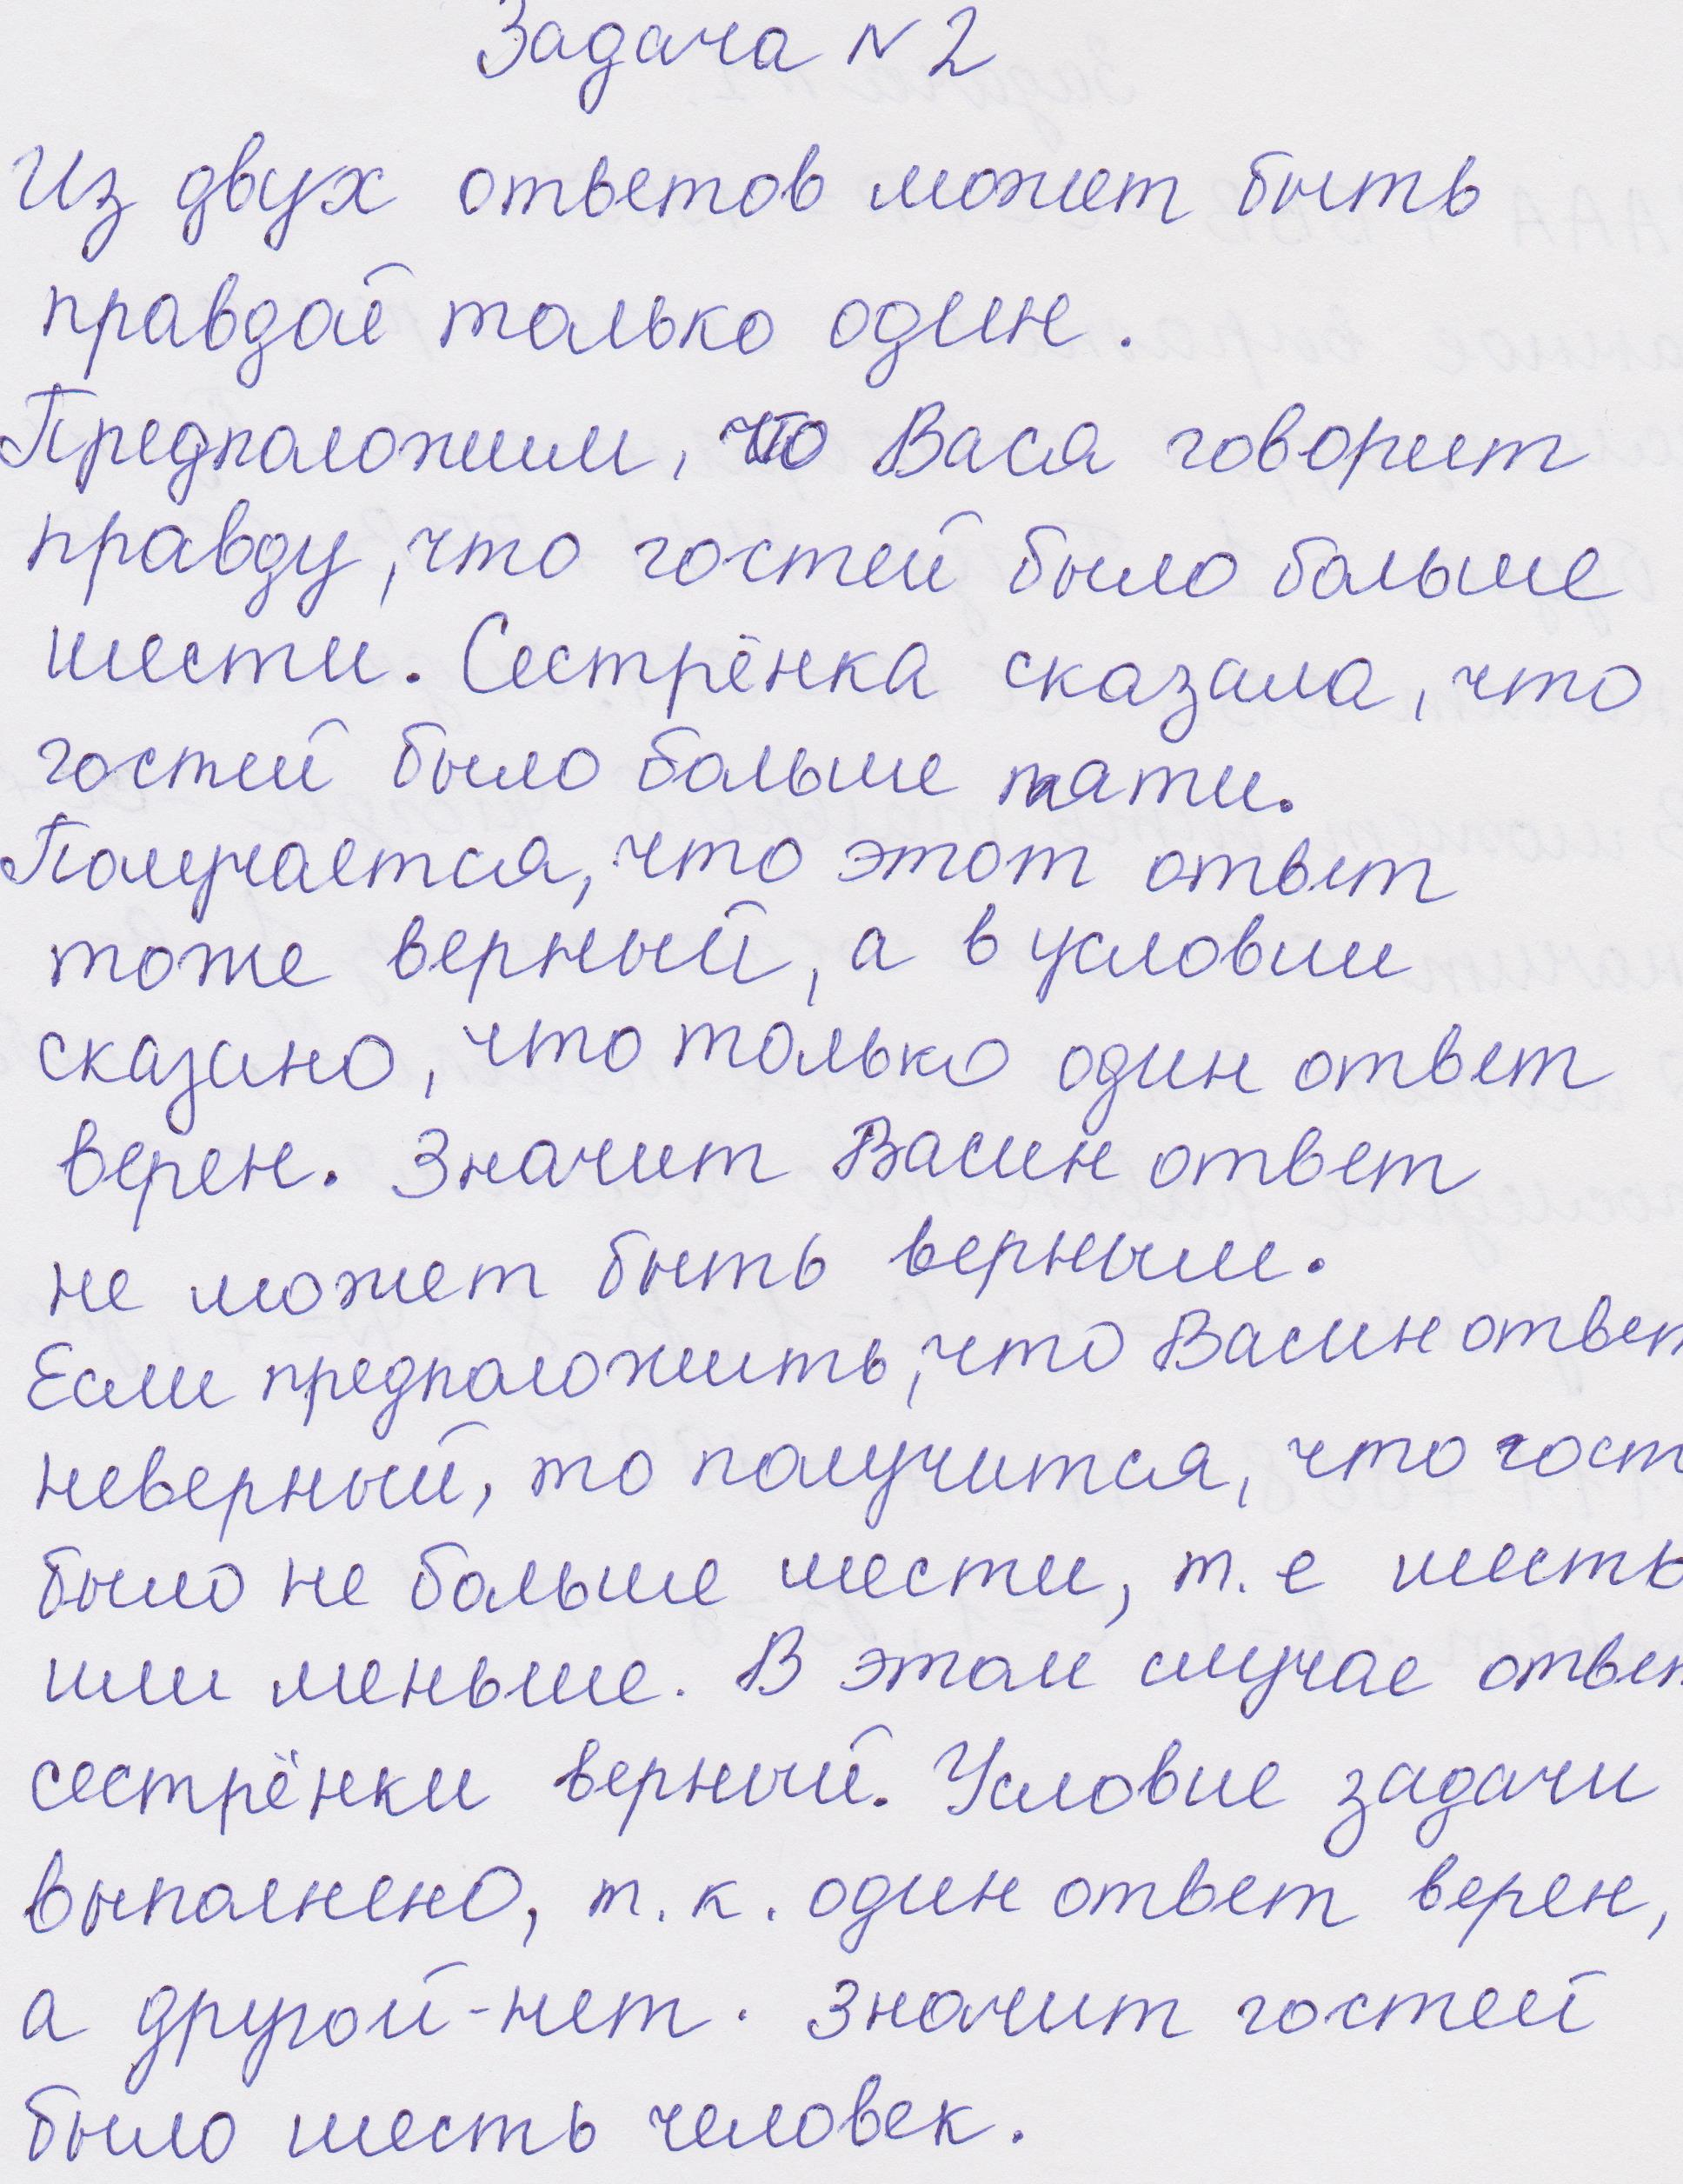 Задача N 2
Из двух ответов может быть
правдой только один.
Предположим, что Вася говорит
правду, что гостей было больше
шести. Сестрёнка сказала, что
гостей было больше пяти.
Получается, что этот ответ
тоже верный, а в условии
сказано, что только один ответ
верен. Значит Васин ответ
не может быть верным.
Если предположить, что Васин ответ
неверный, то получится, что гост
было не больше шести, т.е шесть
или меньше. В этом случае ответ
сестрёнки верный. Условие задачи
выполнено, т.к. один ответ верен,
а другой-нет. Значит гостей
было шесть человек.